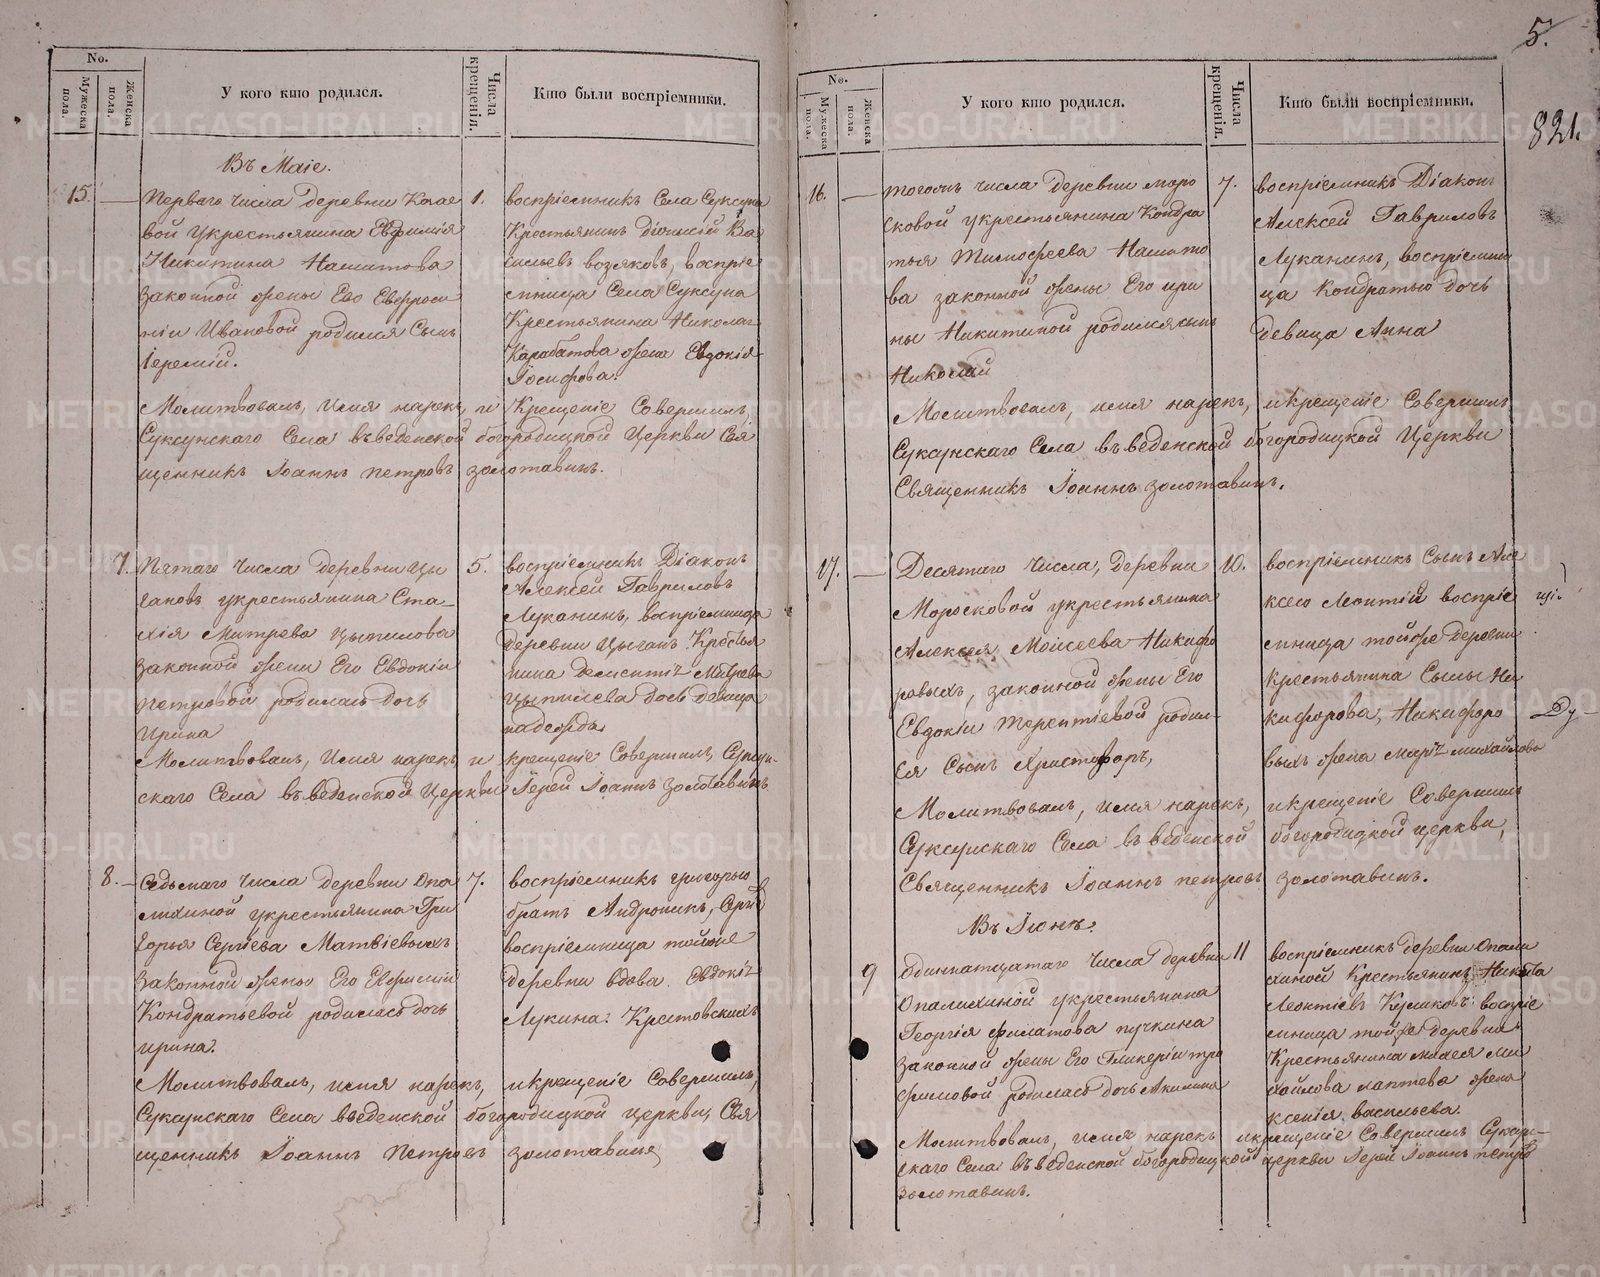 No.
Мужеска пола.
Женска пола.
У кого кто родился.
Числа крещенія.
Кто были воспріемники.
Въ Маіе.
15. Перваго числа деревни
вой укрестьянина Евфимія
Никитина
законной жены Его Евфроси
ніи Ивановой родился Сынъ
Іеремій.
1.
воспріемникъ Села Суксуна
Крестьянинъ Діонисій Ва
сильевъ возяковъ, воспріе
мница Села Суксуна
Крестьянина Николая
Карабатова жена Евдокія
Іосифова.
Молитвовалъ, Имя нарекъ, и Крещеніе Совершилъ,
Суксунскаго Села въведенской богородицкой Церкви Свя
щенникъ Іоаннъ петровъ золотавинъ.
7. Пятаго Числа деревни цы
гановъ укрестьянина Ста
хія Митрева цыпилова
законной жены Его Евдокіи
петровой родилась дочь
ирина
5.
воспріемникъ Діаконъ
Алексей Гавриловъ
Луканинъ, воспріемница
деревни Цыганъ Крестья
нина Митрева
дочь девица
надежда
Молитвовалъ, Имя нарекъ и крещеніе Совершилъ, Суксун-
скаго Села въведенской Церкви Іерей Іоаннъ золотавинъ
8. Седьмаго числа деревни опа
лихиной укрестьянина Гри
горья Сергіева Матвіевыхъ
законной жены Его
Кондратьевой родилась дочь
ирина.
7.
воспріемникъ григорью
братъ Андроникъ,
воспріемница тойже
деревни вдова Евдокія
Лукина Крестовскихъ
Молитвовалъ, имя нарекъ, икрещеніе Совершилъ,
Суксунскаго Села введенской богородицкой церкви, Свя
щенникъ Іоаннъ Петровъ золотавинъ
5.
821.
No.
Мужеска пола.
Женска пола.
У кого кто родился.
Числа крещенія.
Кто были воспріемники.
16. тогожъ числа деревни моро
сковой укрестьянина Кондра
тья Тимофеева
ва законной жены Его ири
ны Никитиной родился сынъ
Николай
7.
воспріемникъ Діаконъ
Алексей Гавриловъ
Луканинъ, воспріемни
ца Кондратью дочь
девица Анна
Молитвовалъ, имя нарекъ, икрещеніе Совершилъ
Суксунскаго Села въведенской богородицкой Церкви
Священникъ Іоаннъ золотавинъ.
17. Десятаго Числа, деревни
Моросковой укрестьянина
Алексея Моисеева Никифо
ровыхъ, законной жены Его
Евдокіи Терентіевой родил-
ся Сынъ Христофоръ,
10.
воспріемникъ Сынъ Але
ксею Леонтій воспріе
мница тойже деревни
крестьянина Сысы Ни
кифорова, Никифоро
выхъ жена михайлова
Молитвовалъ, имя нарекъ, икрещеніе Совершилъ
Суксунскаго Села въведенской богородицкой церкви,
Священникъ Іоаннъ петровъ золотавинъ.
Въ Іюнѣ.
9 Одиннатцатаго Числа деревни
Опалихиной укрестьянина
Георгія Филатова пучкина
законной жены Его Гликеріи тро
фимовой родилась дочь Акилина
11
воспріемникъ деревни Опали
хиной Крестьянинъ Никита
Леонтіевъ Куликовъ воспріе
мница тойже деревни
Крестьянина ми
хайлова лаптева жена
ксенія васильева.
Молитвовалъ, имя нарекъ икрещеніе Совершилъ Суксун-
скаго Села въведенской богородицкой церкви Іерей Іоаннъ петро
золотавинъ.